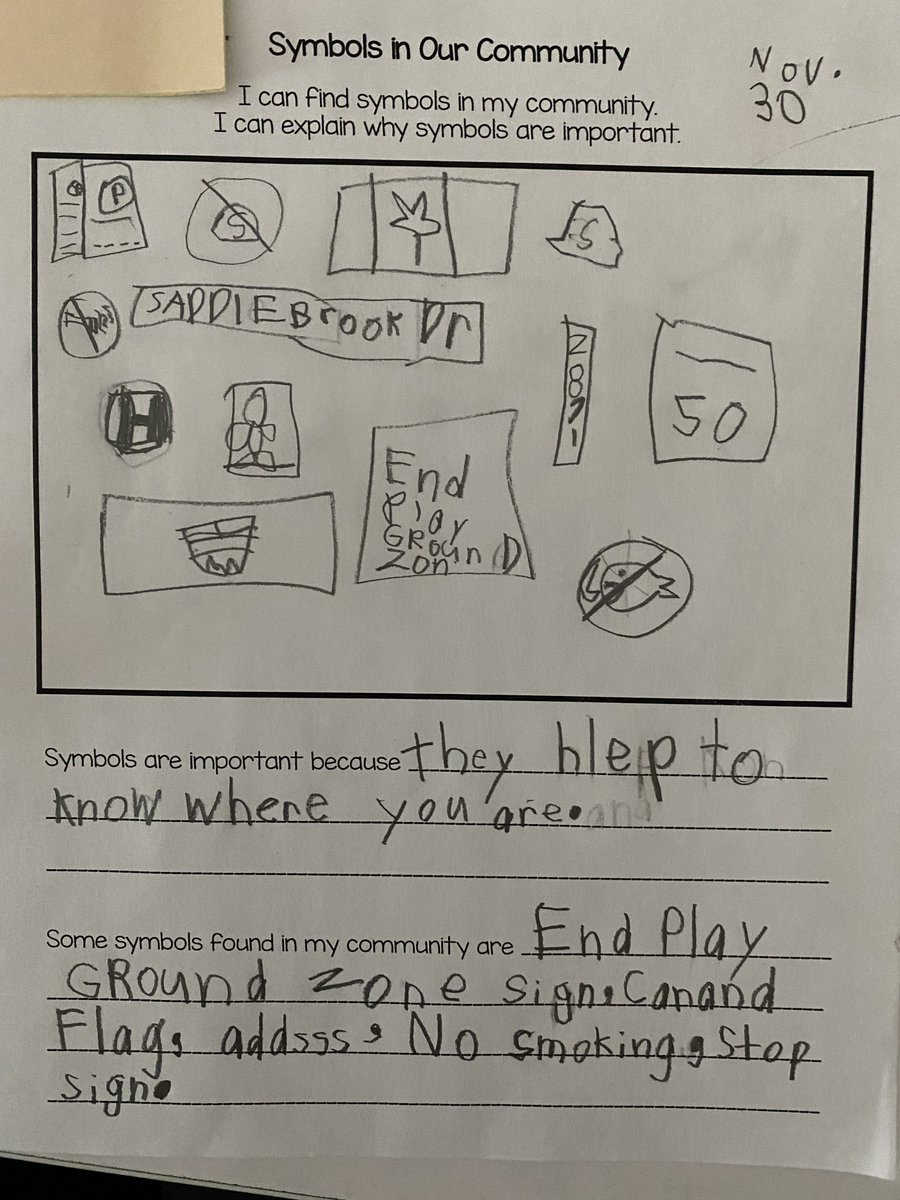 Symbols in Our Community
Nov.
30
I can find symbols in my community.
I can explain why symbols are important.
P
S
S
SADDLEBrook Dr
2871
50
H
End
Play
GRounD
Zon
Symbols are important because they hlep to
know where you are.
Some symbols found in my community are End Play
GRound zone sign, Canand
Flag, addsss, No smoking, Stop
sign.